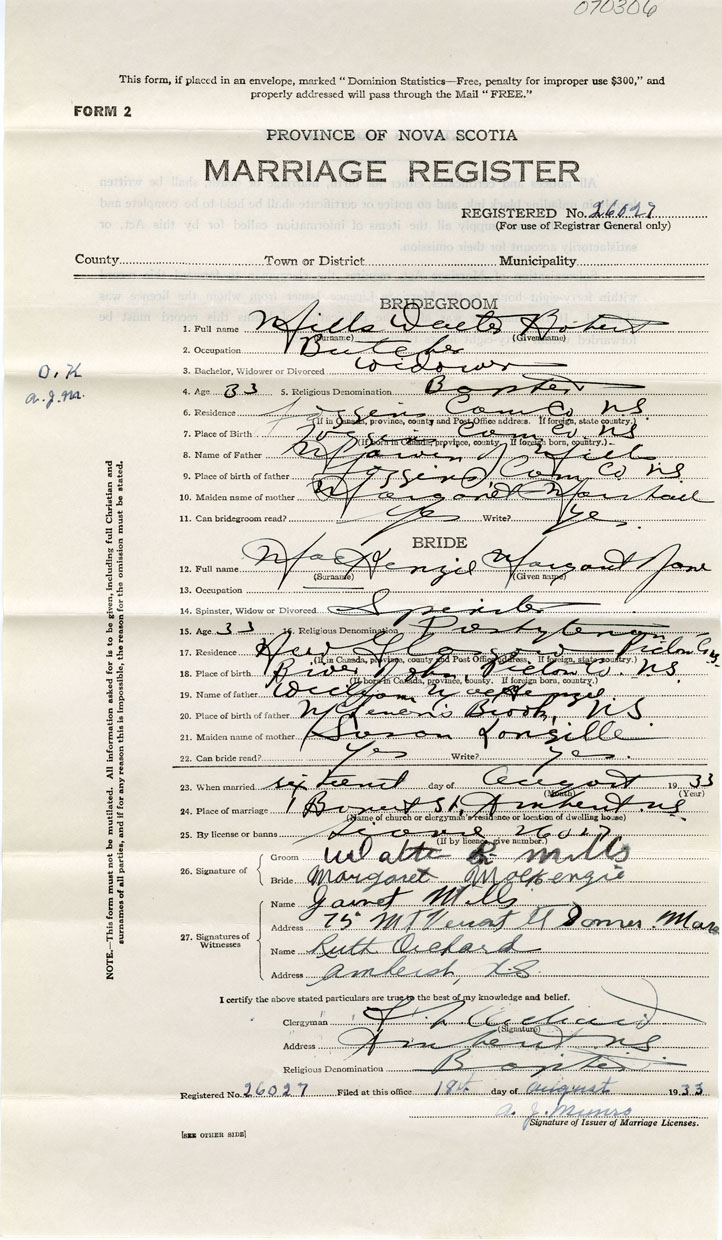 070306
This form, if placed in an envelope, marked "Dominion Statistics—Free, penalty for improper use $300," and
properly addressed will pass through the Mail "FREE."
FORM 2
PROVINCE OF NOVA SCOTIA
MARRIAGE REGISTER
REGISTERED No. 26027
(For use of Registrar General only)
County Town or District Municipality
BRIDEGROOM
1. Full name Mills Walter Robert
(Surname) (Given name)
2. Occupation Butcher
3. Bachelor, Widower or Divorced Widower
O. K
a. J. M.
4. Age 33 5. Religious Denomination Baptist
6. Residence Joggins Cum Co NS.
(If in Canada, province, county and Post Office address. If foreign, state country.)
7. Place of Birth Joggins Cum Co NS.
(If born in Canada, province, county. If foreign born, country.)
8. Name of Father Mills
9. Place of birth of father Joggins Cum Co NS
10. Maiden name of mother Margaret Marshall
11. Can bridegroom read? Yes Write? Yes
BRIDE
12. Full name MacKenzie Margaret Jane
(Surname) (Given name)
13. Occupation
14. Spinster, Widow or Divorced Spinster
15. Age 33 16. Religious Denomination Presbyterian
17. Residence New Glasgow Pictou Co NS.
(If in Canada, province, county and Post Office address. If foreign, state country.)
18. Place of birth River John Pictou Co. NS
(If born in Canada, province, county. If foreign born, country.)
19. Name of father William MacKenzie
20. Place of birth of father Brook, NS
21. Maiden name of mother Susan Langille
22. Can bride read? Yes Write? Yes.
23. When married sixteenth day of August 1933
(Month) (Year)
24. Place of marriage 1 St. Amherst NS
(Name of church or clergyman's residence or location of dwelling house)
25. By license or banns License 26027
(If by licence, give number.)
26. Signature of Groom Walter R Mills
Bride Margaret MacKenzie
27. Signatures of Witnesses Name Garnet Mills
Address 75 Mt Vernon St Somer. Mass
Name Ruth Orchard
Address Amherst, N.S.
I certify the above stated particulars are true to the best of my knowledge and belief.
Clergyman Orchard
(Signature)
Address Amherst NS
Religious Denomination Baptist
Registered No. 26027 Filed at this office 18th day of August 1933
a. J. Munro
Signature of Issuer of Marriage Licenses.
[SEE OTHER SIDE]
NOTE.—This form must not be mutilated. All information asked for is to be given, including full Christian and
surnames of all parties, and if for any reason this is impossible, the reason for the omission must be stated.